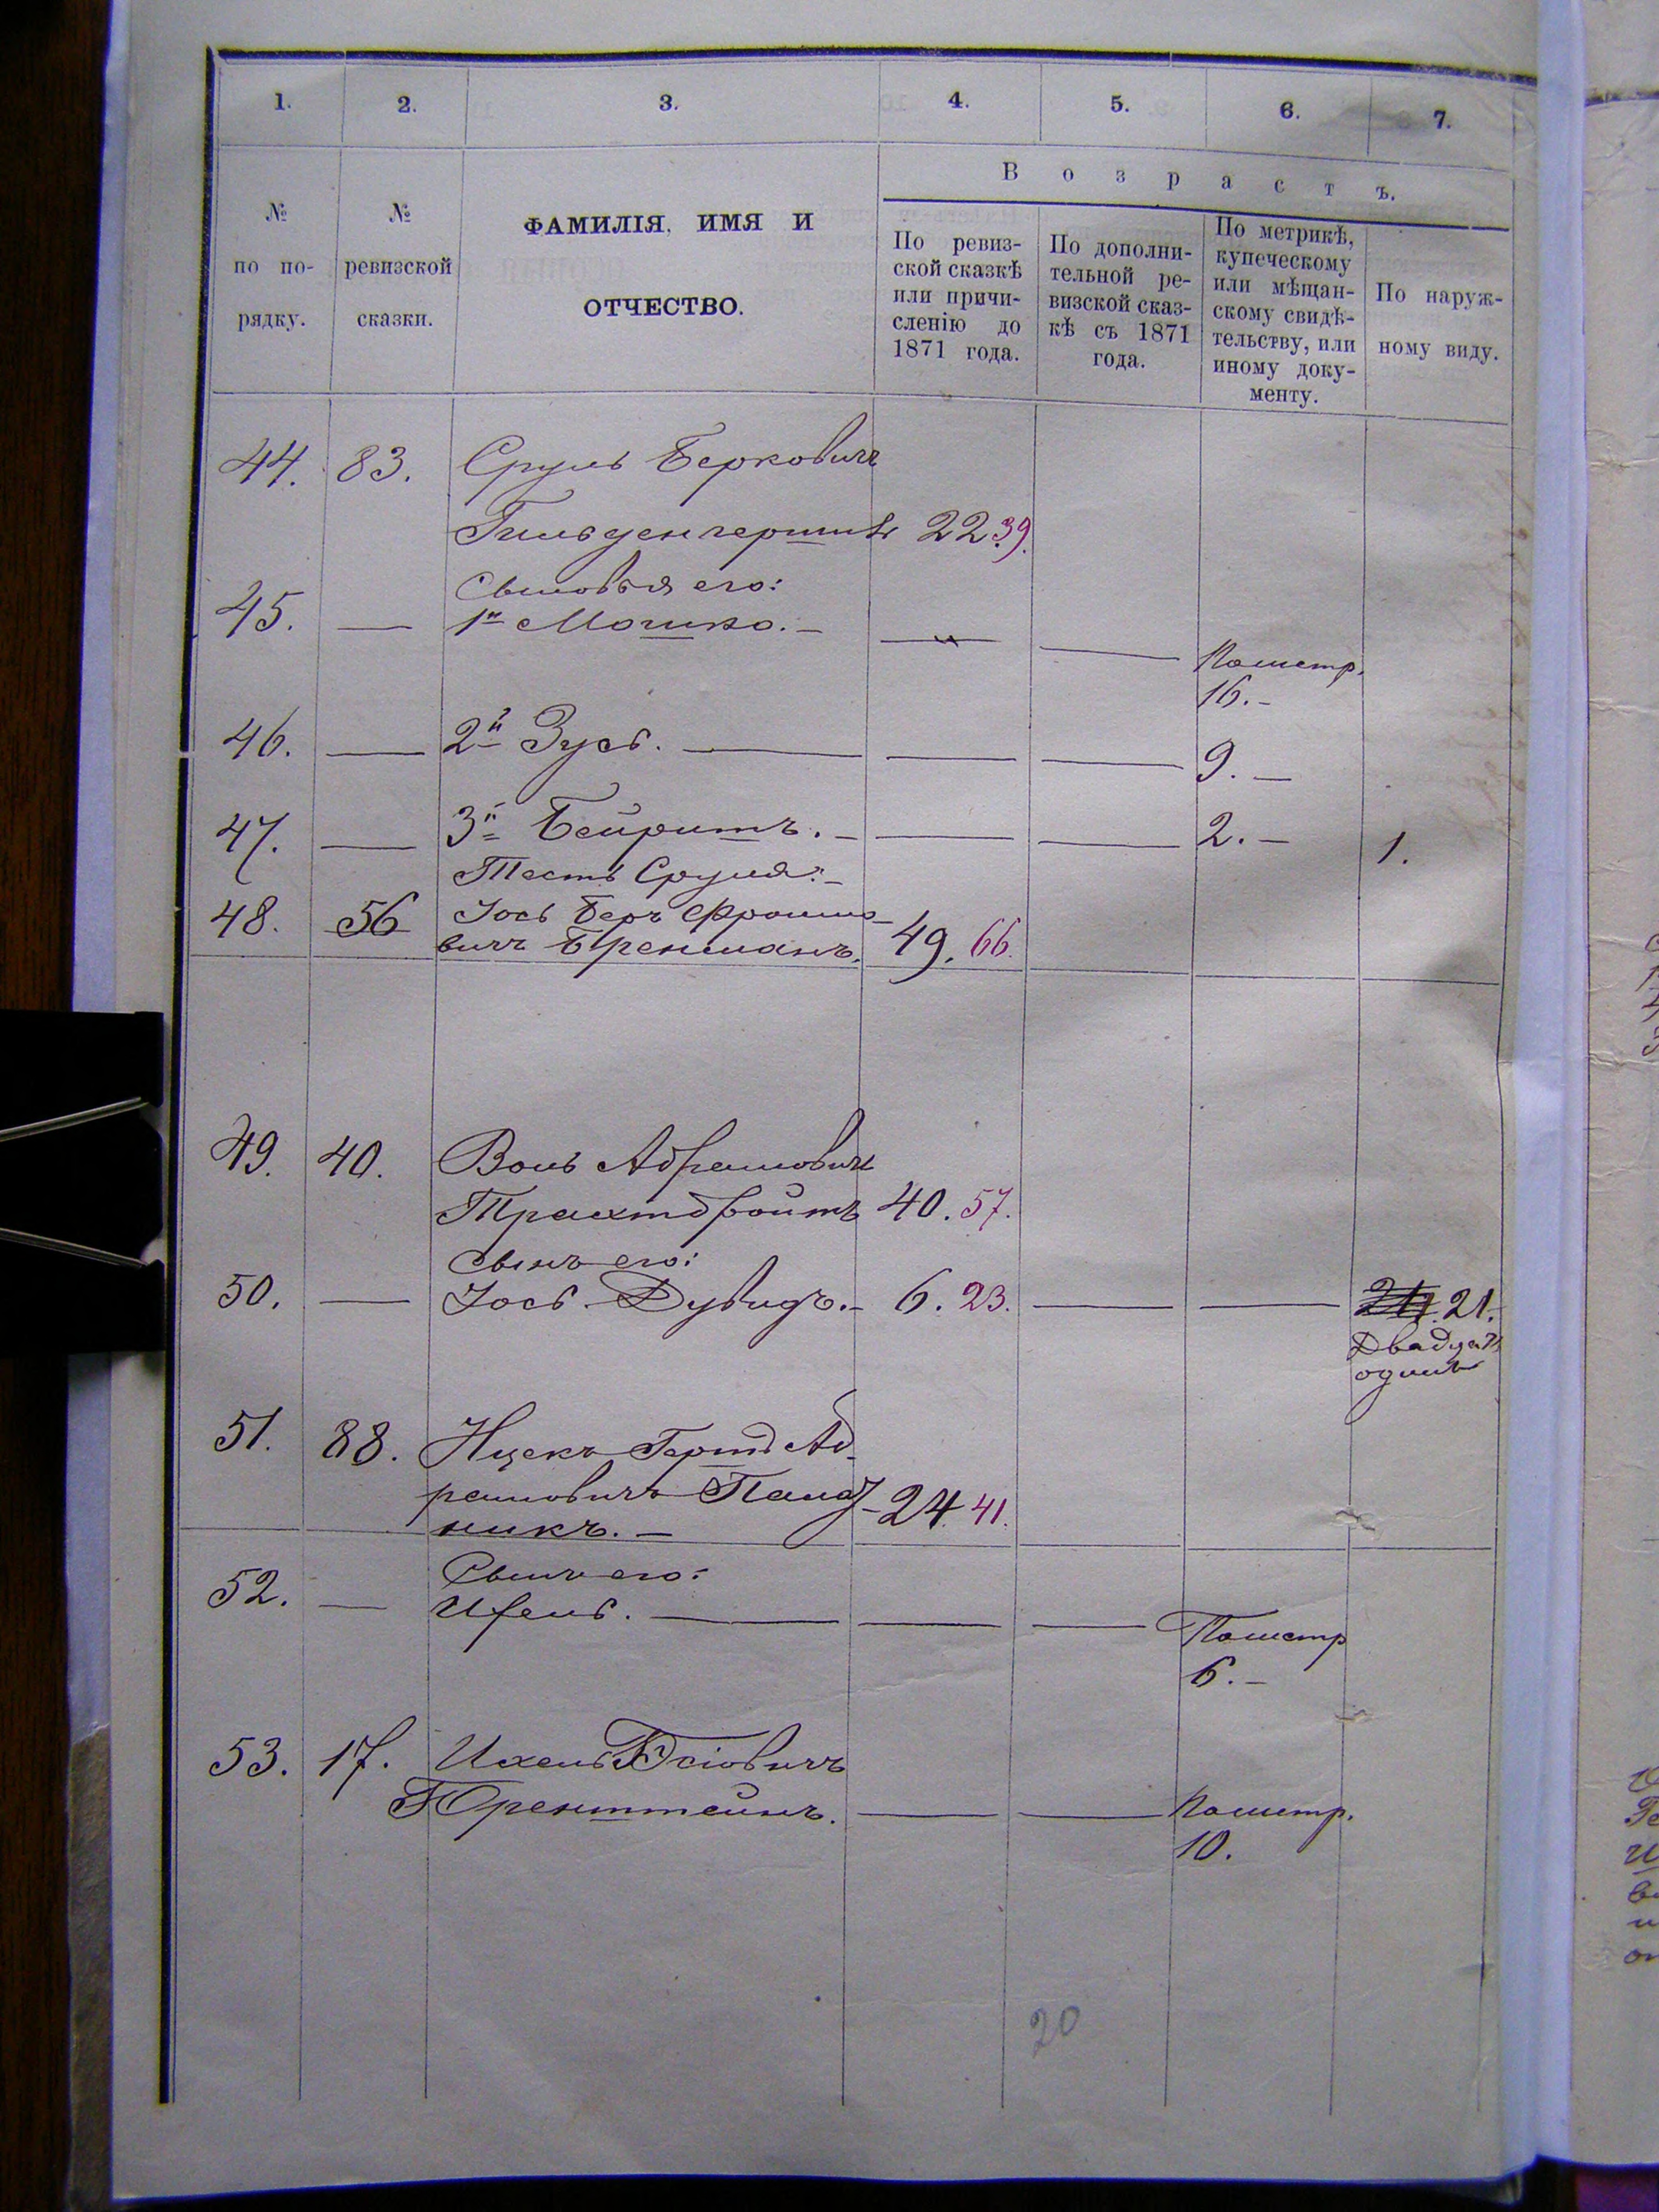 1. 2. 3. 4. 5. 6. 7.
В о з р а с т ъ.
№ по по-рядку.
№ ревизской сказки.
ФАМИЛІЯ, ИМЯ И
ОТЧЕСТВО.
По ревиз-
ской сказкѣ
или причи-
сленію до
1871 года.
По дополни-
тельной ре-
визской сказ-
кѣ съ 1871
года.
По метрикѣ,
купеческому
или мѣщан-
скому свидѣ-
тельству, или
иному доку-
менту.
По наруж-
ному виду.
44. 83. Сруль Берковичъ
22 39.
Сыновья его:
45. — 1й Мошко. — — —
Пометр.
16. —
46. — 2й Зусь. — — — 9. —
47. — 3й Бейришъ. — — — 2. — 1.
Тесть Сруля: —
48. 56 Іось Беръ Фроимо-
вичъ Бренманъ. 49. 66.
49. 40.Воль Абрамовичъ
Трахтбройтъ 40. 57.
Сынъ его:
50. — Іось-Дувидъ. — 6. 23. — — 21.
Двадцать
одинъ
51. 88. Ицекъ Гершъ Аб-
рамовичъ
никъ. — 24 41.
Сынъ его:
52. — — — —
Пометр
6. —
53. 17. Ихель
Юренштейнъ. — — Пометр.
10.
20